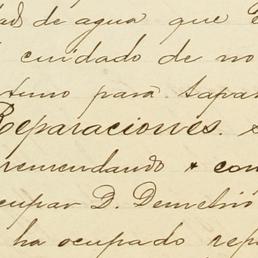 de agua que
cuidado de no
para tapar
Reparaciones.
remendando
ocupar D. Demetrio
ha ocupado